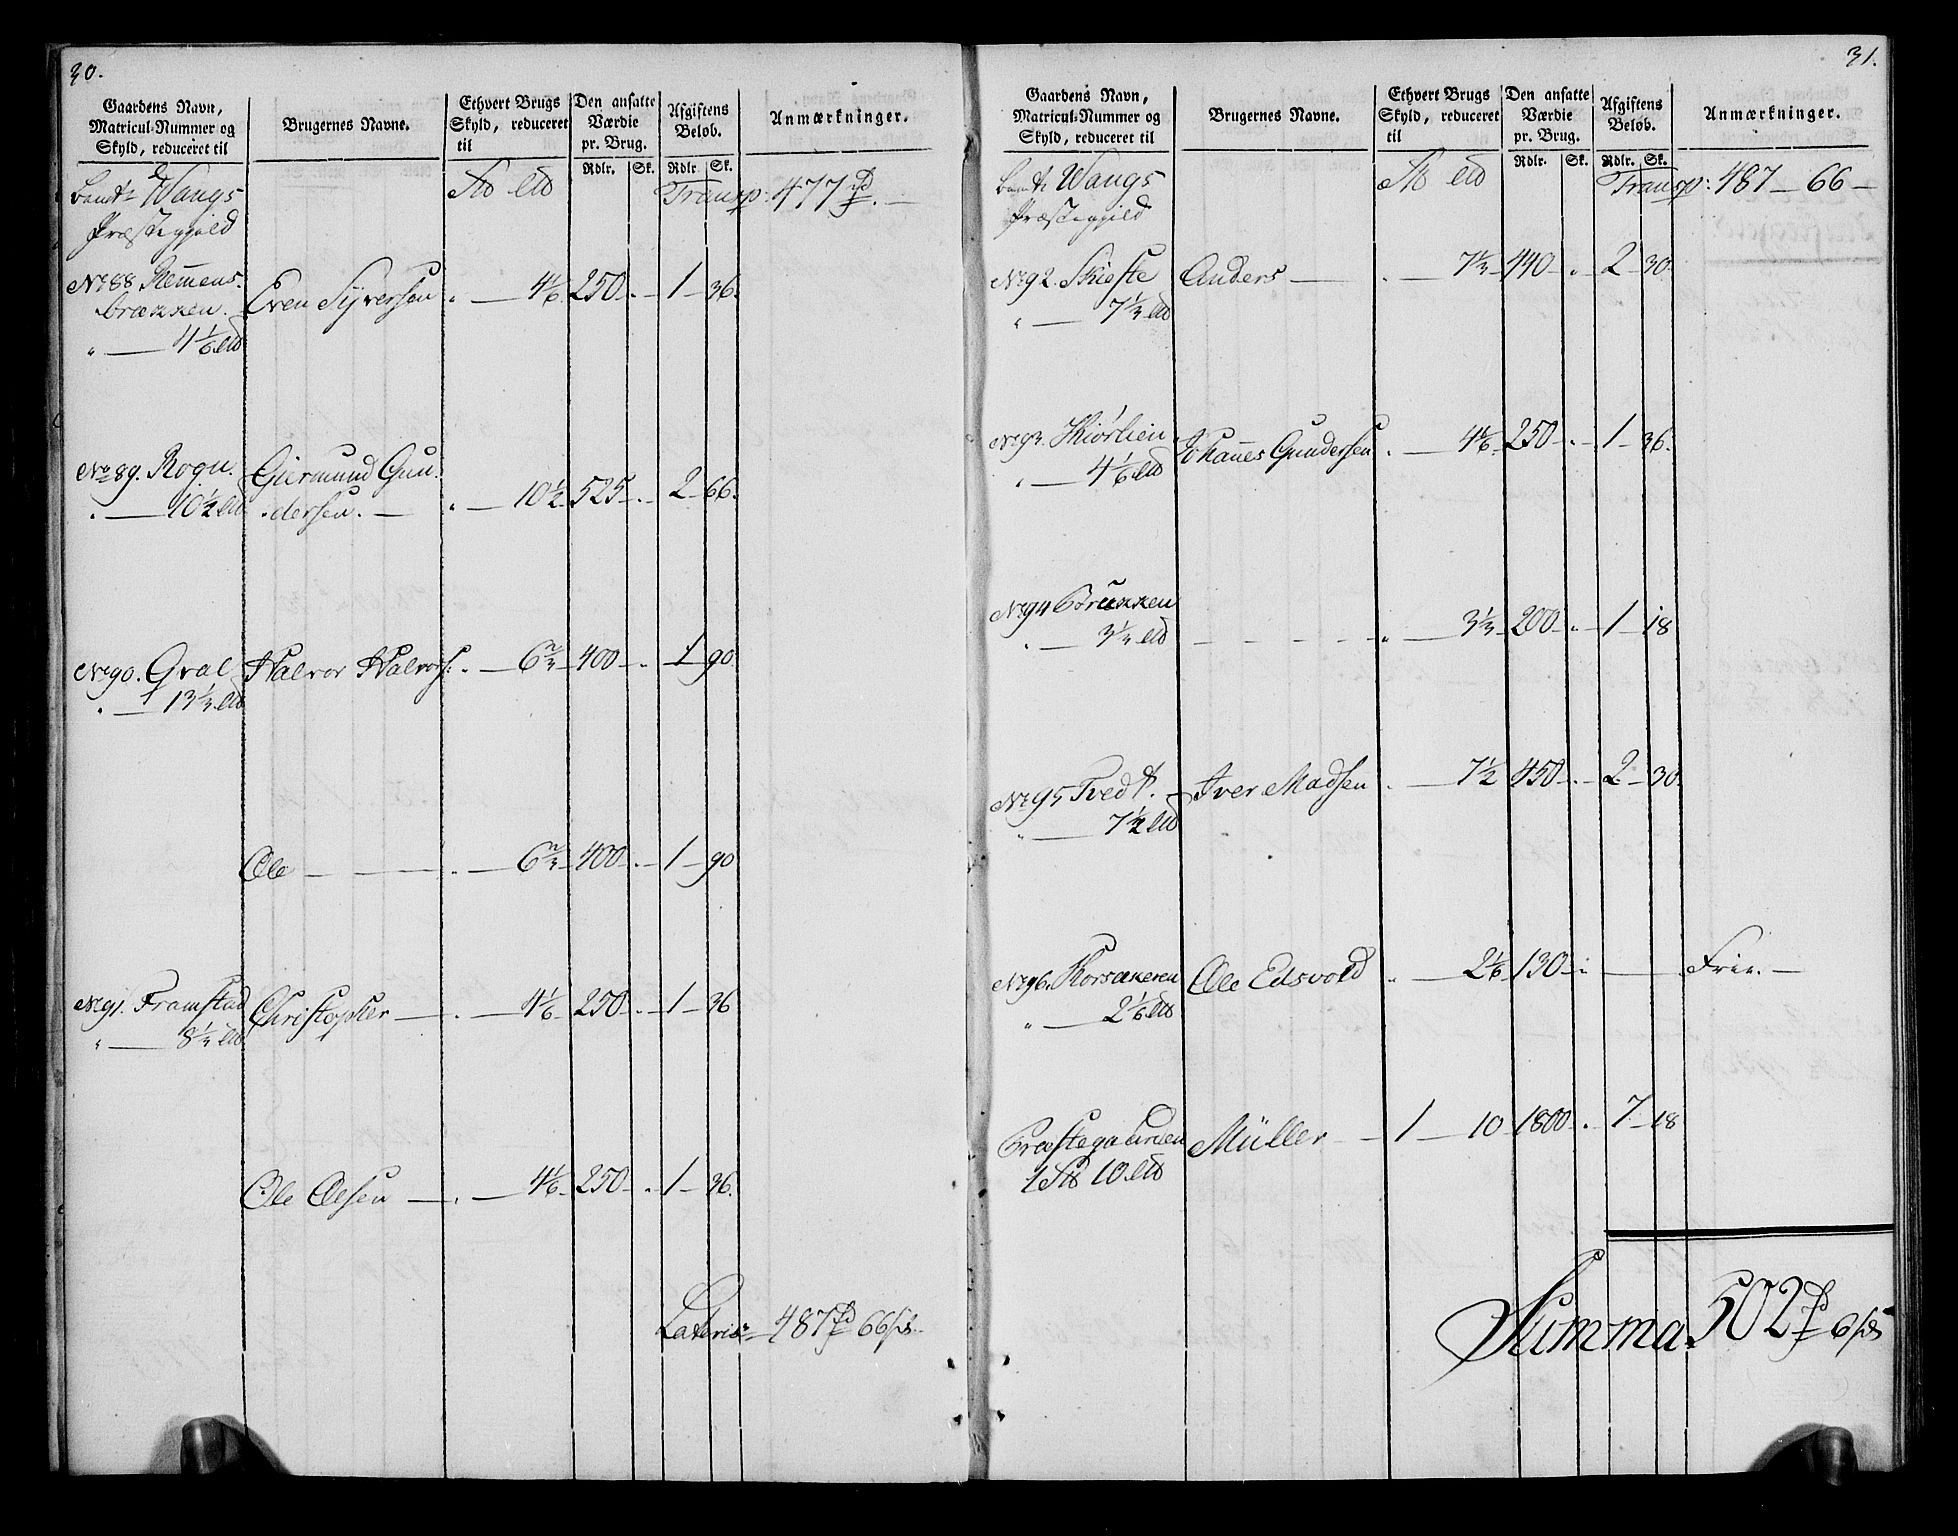 30.
Gaardens Navn, Matricul-Nummer og Skyld, reduceret til
Brugernes Navne.
Ethvert Brugs Skyld, reduceret til
Den ansatte Værdie pr. Brug.
Rdlr. Sk.
Afgiftens Beløb.
Rdlr. Sk.
Anmærkninger.
Wangs
Præstegield
Transp: 477
No 88
brækken. Even Syversen 4 1/6 250 1 36.
4 1/6
No 89. Rogn. Giermund Gun-
10 1/2 dersen. 10 1/2 525 2 66.
No 90. Qval Halvor Halvors: 6 2/3 400 1 90
13 1/3
Ole 6 2/3 400 1 90
No 91. Framstad Christopher 4 1/6 250 1 36
8 1/3
Ole Olsen 4 1/6 250 1 36.
Lateris 487 66
31.
Gaardens Navn, Matricul-Nummer og Skyld, reduceret til
Brugernes Navne.
Ethvert Brugs Skyld, reduceret til
Den ansatte Værdie pr. Brug.
Rdlr. Sk.
Afgiftens Beløb.
Rdlr. Sk.
Anmærkninger.
Wangs
Præstegield
Transp: 487 66
No 92. Anders 7 1/3 440 2 30
7 1/3
No 93. Johannes Gundersen 4 1/6 250 1 36.
4 1/6
No 94 3 1/3 200 1 18
3 1/3
No 95 Tvedt. Iver Madsen 7 1/2 450 2 30
7 1/2
No 96. Korsakeren Ole Edsvold 2 1/6 130 Frie.
2 1/6
Præstegaarden Müller 1 10 1800 7 18
1 10
Summa 502 6